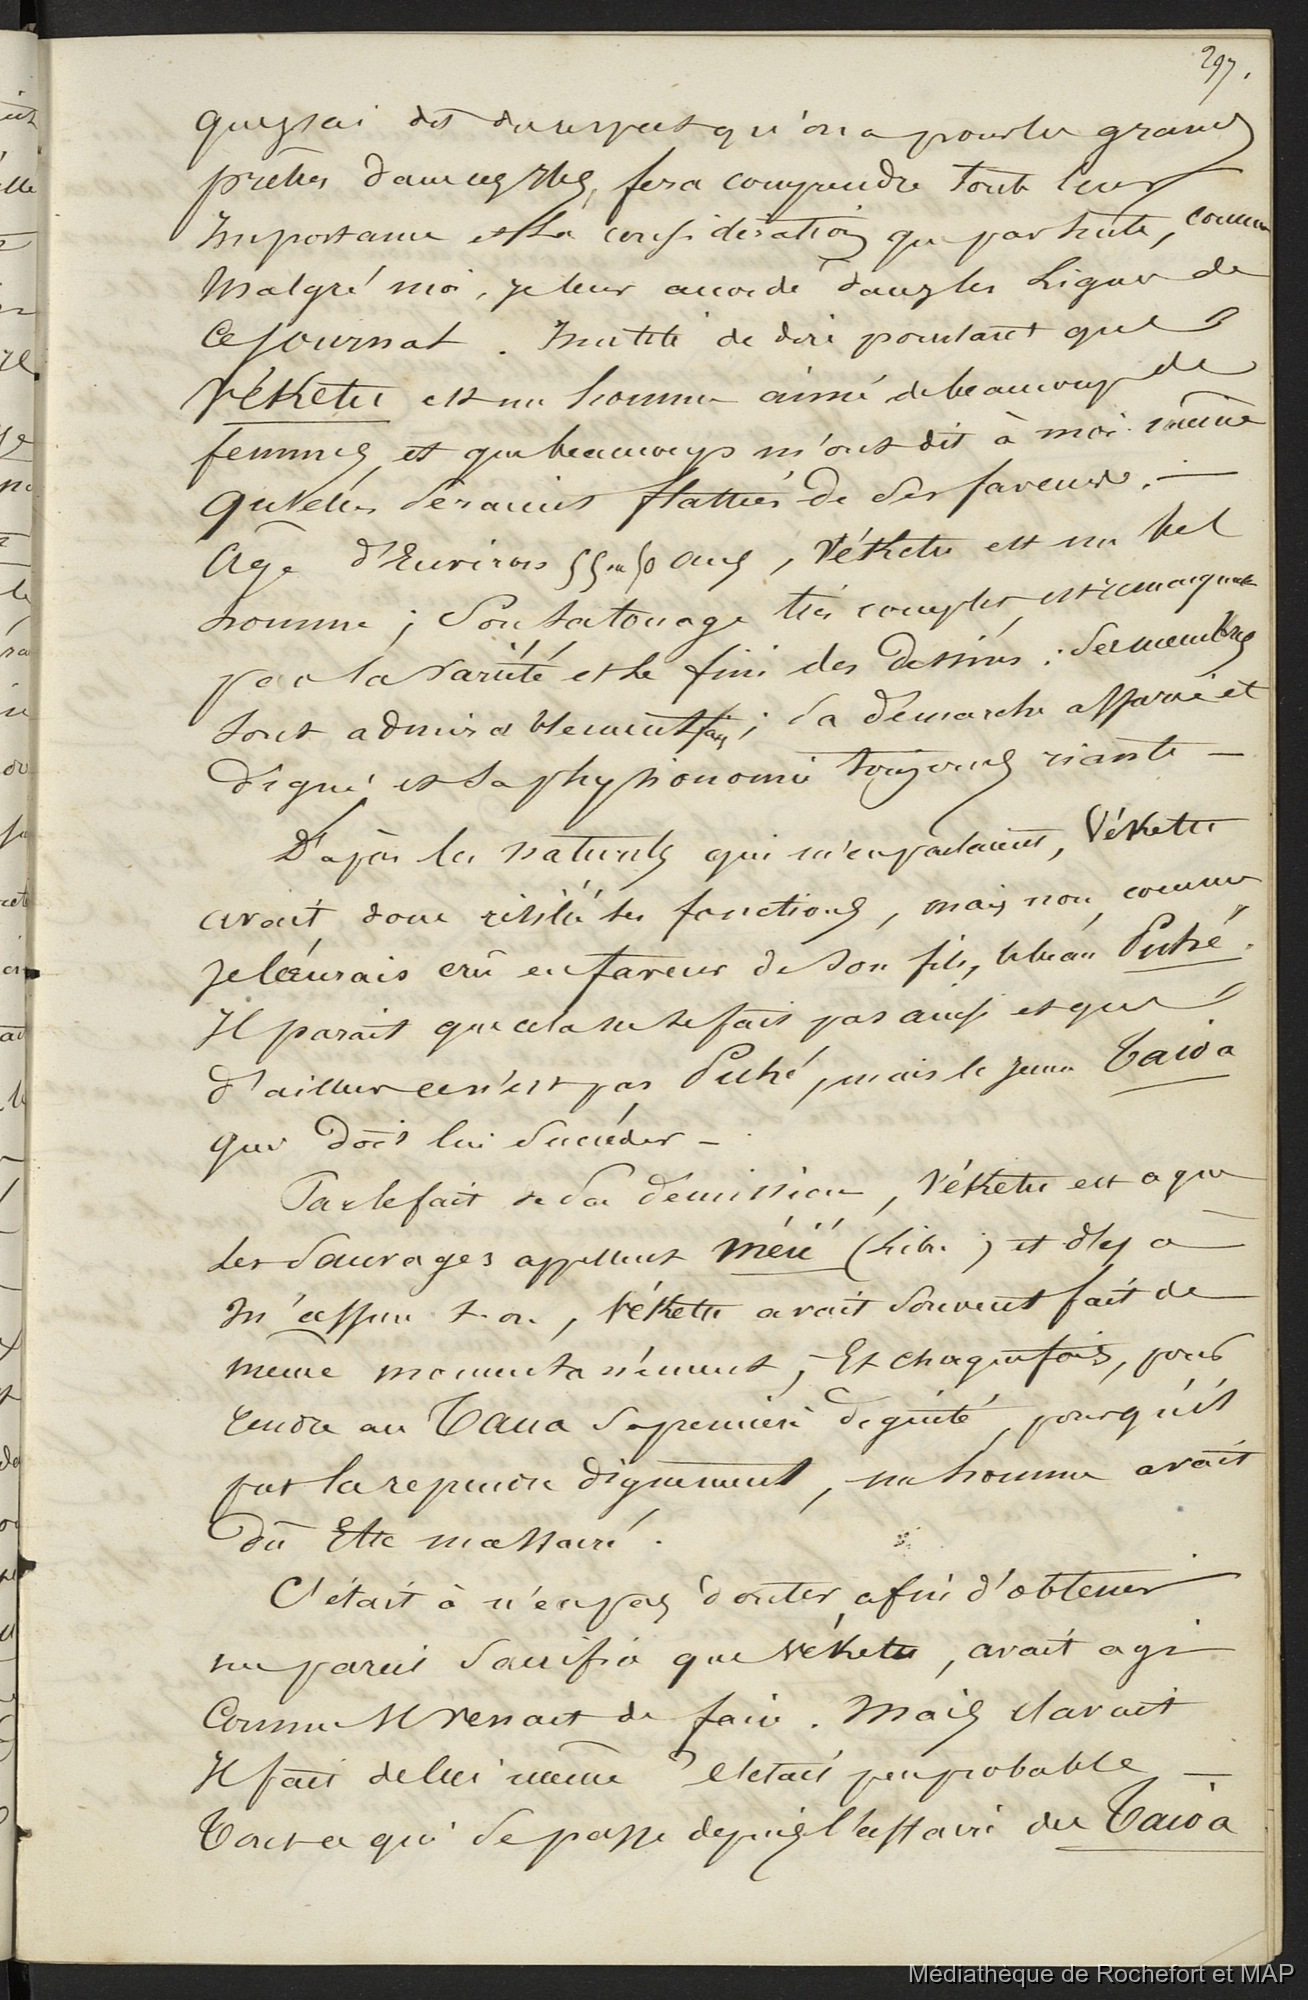 297.
que j'ai dit du respect qu'on a pour les grands
prêtres dans ces îles, fera comprendre toute leur
Importance et la considération que par suite, comme
Malgré moi, je leur accorde dans les lignes de
Ce Journal. Inutile de dire pourtant que
Vékétu est un homme aimé de beaucoup de
femmes et que beaucoup m'ont dit à moi même
qu'elles seraient flattées de ses faveurs. —
Agé d'Environ 55 ans, Vékétu est un bel
homme; Son tatouage très complet, est remarquable
par la variété et le fini des dessins: Ses membres
sont admirablement fais; sa démarche assurée et
digne et sa physionomie toujours riante —
D'après les naturels qui m'en parlaient, Vékétu
avait donc résilié ses fonctions, mais non, comme
je l'aurais crû en faveur de son fils, le beau Puhé.
Il parait que cela ne se fait pas ainsi et que
d'ailleurs ce n'est pas Puhé, mais le jeune Taïoa
qui doit lui succéder —
Par le fait de sa démission, Vékétu est ce que
les Sauvages appellent méïé (Libre) et déjà
M'assure t-on, Vékétu avait souvent fait de
meme momentanément, Et chaque fois, pour
rendre au Taua sa première dignité, pour qu'il
put la reprendre dignement, un homme avait
dû Etre massacré.
C'était à n'en pas douter, afin d'obtenir
un pareil sacrifice que Vékétu, avait agi
Comme Il venait de faire. Mais l'avait
Il fait de lui même? C'était peu probable —
Tout ce qui se passe depuis l'affaire du Taïoa
Médiathèque de Rochefort et MAP